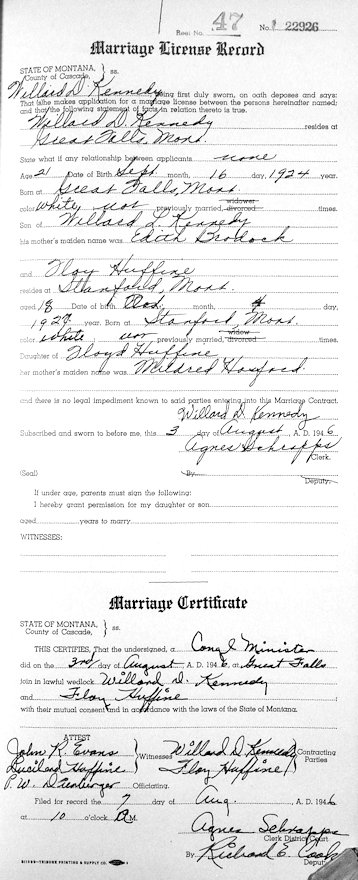 Reel No. 47 No. 22926
Marriage License Record
STATE OF MONTANA, } ss.
County of Cascade,
Willard D. Kennedy being first duly sworn, on oath deposes and says:
That (s)he makes application for a marriage license between the persons hereinafter named;
and that the following statement of facts in relation thereto is true.
Willard D. Kennedy resides at
Great Falls, Mont.
State what if any relationship between applicants none
Age 21 Date of Birth Sept month, 16 day, 1924 year.
Born at Great Falls, Mont.
color White, not previously married, widower divorced times.
Son of Willard L. Kennedy
his mother's maiden name was Edith Brodock
and Floy Huffine
resides at Stanford, Mont.
aged 18 Date of birth month, day,
192 year. Born at Stanford, Mont.
color White, not previously married, widow divorced times.
Daughter of Floyd Huffine
her mother's maiden name was Mildred Hosford
and there is no legal impediment known to said parties entering into this Marriage Contract.
Willard D. Kennedy
Subscribed and sworn to before me, this 3 day of August, A. D. 1946
Agnes Schrapps
Clerk.
(Seal) By
Deputy.
If under age, parents must sign the following:
I hereby grant permission for my daughter or son
aged years to marry
WITNESSES:
Marriage Certificate
STATE OF MONTANA, } ss.
County of Cascade,
THIS CERTIFIES, That the undersigned, a Cong'l Minister
did on the 3rd day of August, A. D. 1946 at Great Falls
join in lawful wedlock Willard D. Kennedy
and Floy Huffine
with their mutual consent and in accordance with the laws of the State of Montana.
ATTEST
John R. Evans } Witnesses Willard D. Kennedy } Contracting
Lucile Huffine Floy Huffine Parties
P. W. Officiating.
Filed for record the 7 day of Aug., 1946
at 10 o'clock A.M.
Agnes Schrapps
Clerk District Court
By Richard E. Cook
Deputy
TRIBUNE PRINTING & SUPPLY CO.